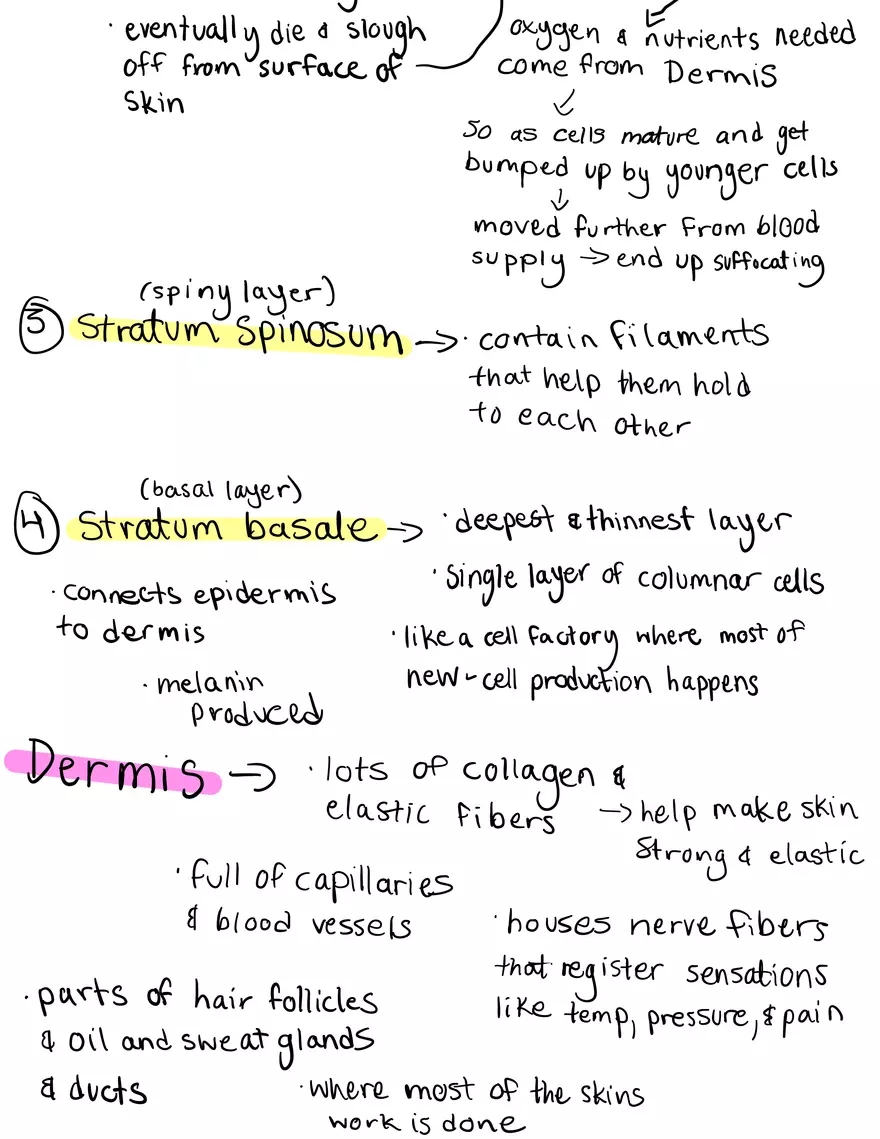 · eventually die & slough
off from surface of
skin
oxygen & nutrients needed
come from Dermis
so as cells mature and get
bumped up by younger cells
moved further from blood
supply → end up suffocating
(spiny layer)
③ Stratum Spinosum → · contain filaments
that help them hold
to each other
(basal layer)
④ Stratum basale → · deepest & thinnest layer
· single layer of columnar cells
· like a cell factory where most of
new-cell production happens
· connects epidermis
to dermis
· melanin
produced
Dermis → · lots of collagen &
elastic fibers → help make skin
strong & elastic
· full of capillaries
& blood vessels
· houses nerve fibers
that register sensations
like temp, pressure, & pain
· parts of hair follicles
& oil and sweat glands
& ducts
· where most of the skins
work is done